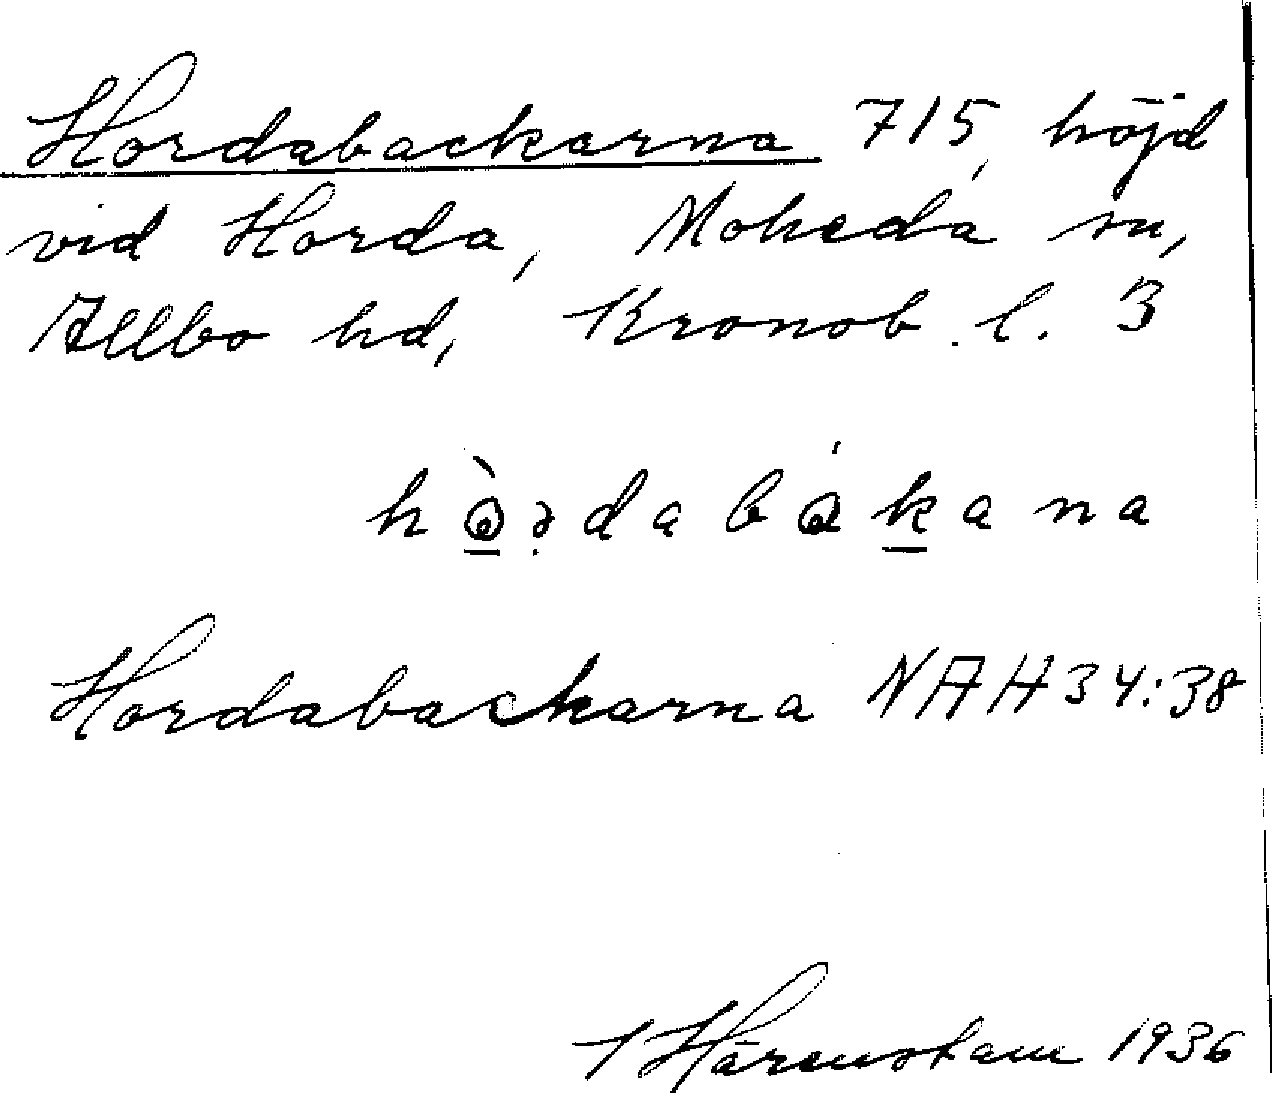 Hordabackarna 715, höjd
vid Horda, Moheda sn,
Allbo hd, Kronob. l. 3
Hordabackarna NAH 34:38
Härenstam 1936